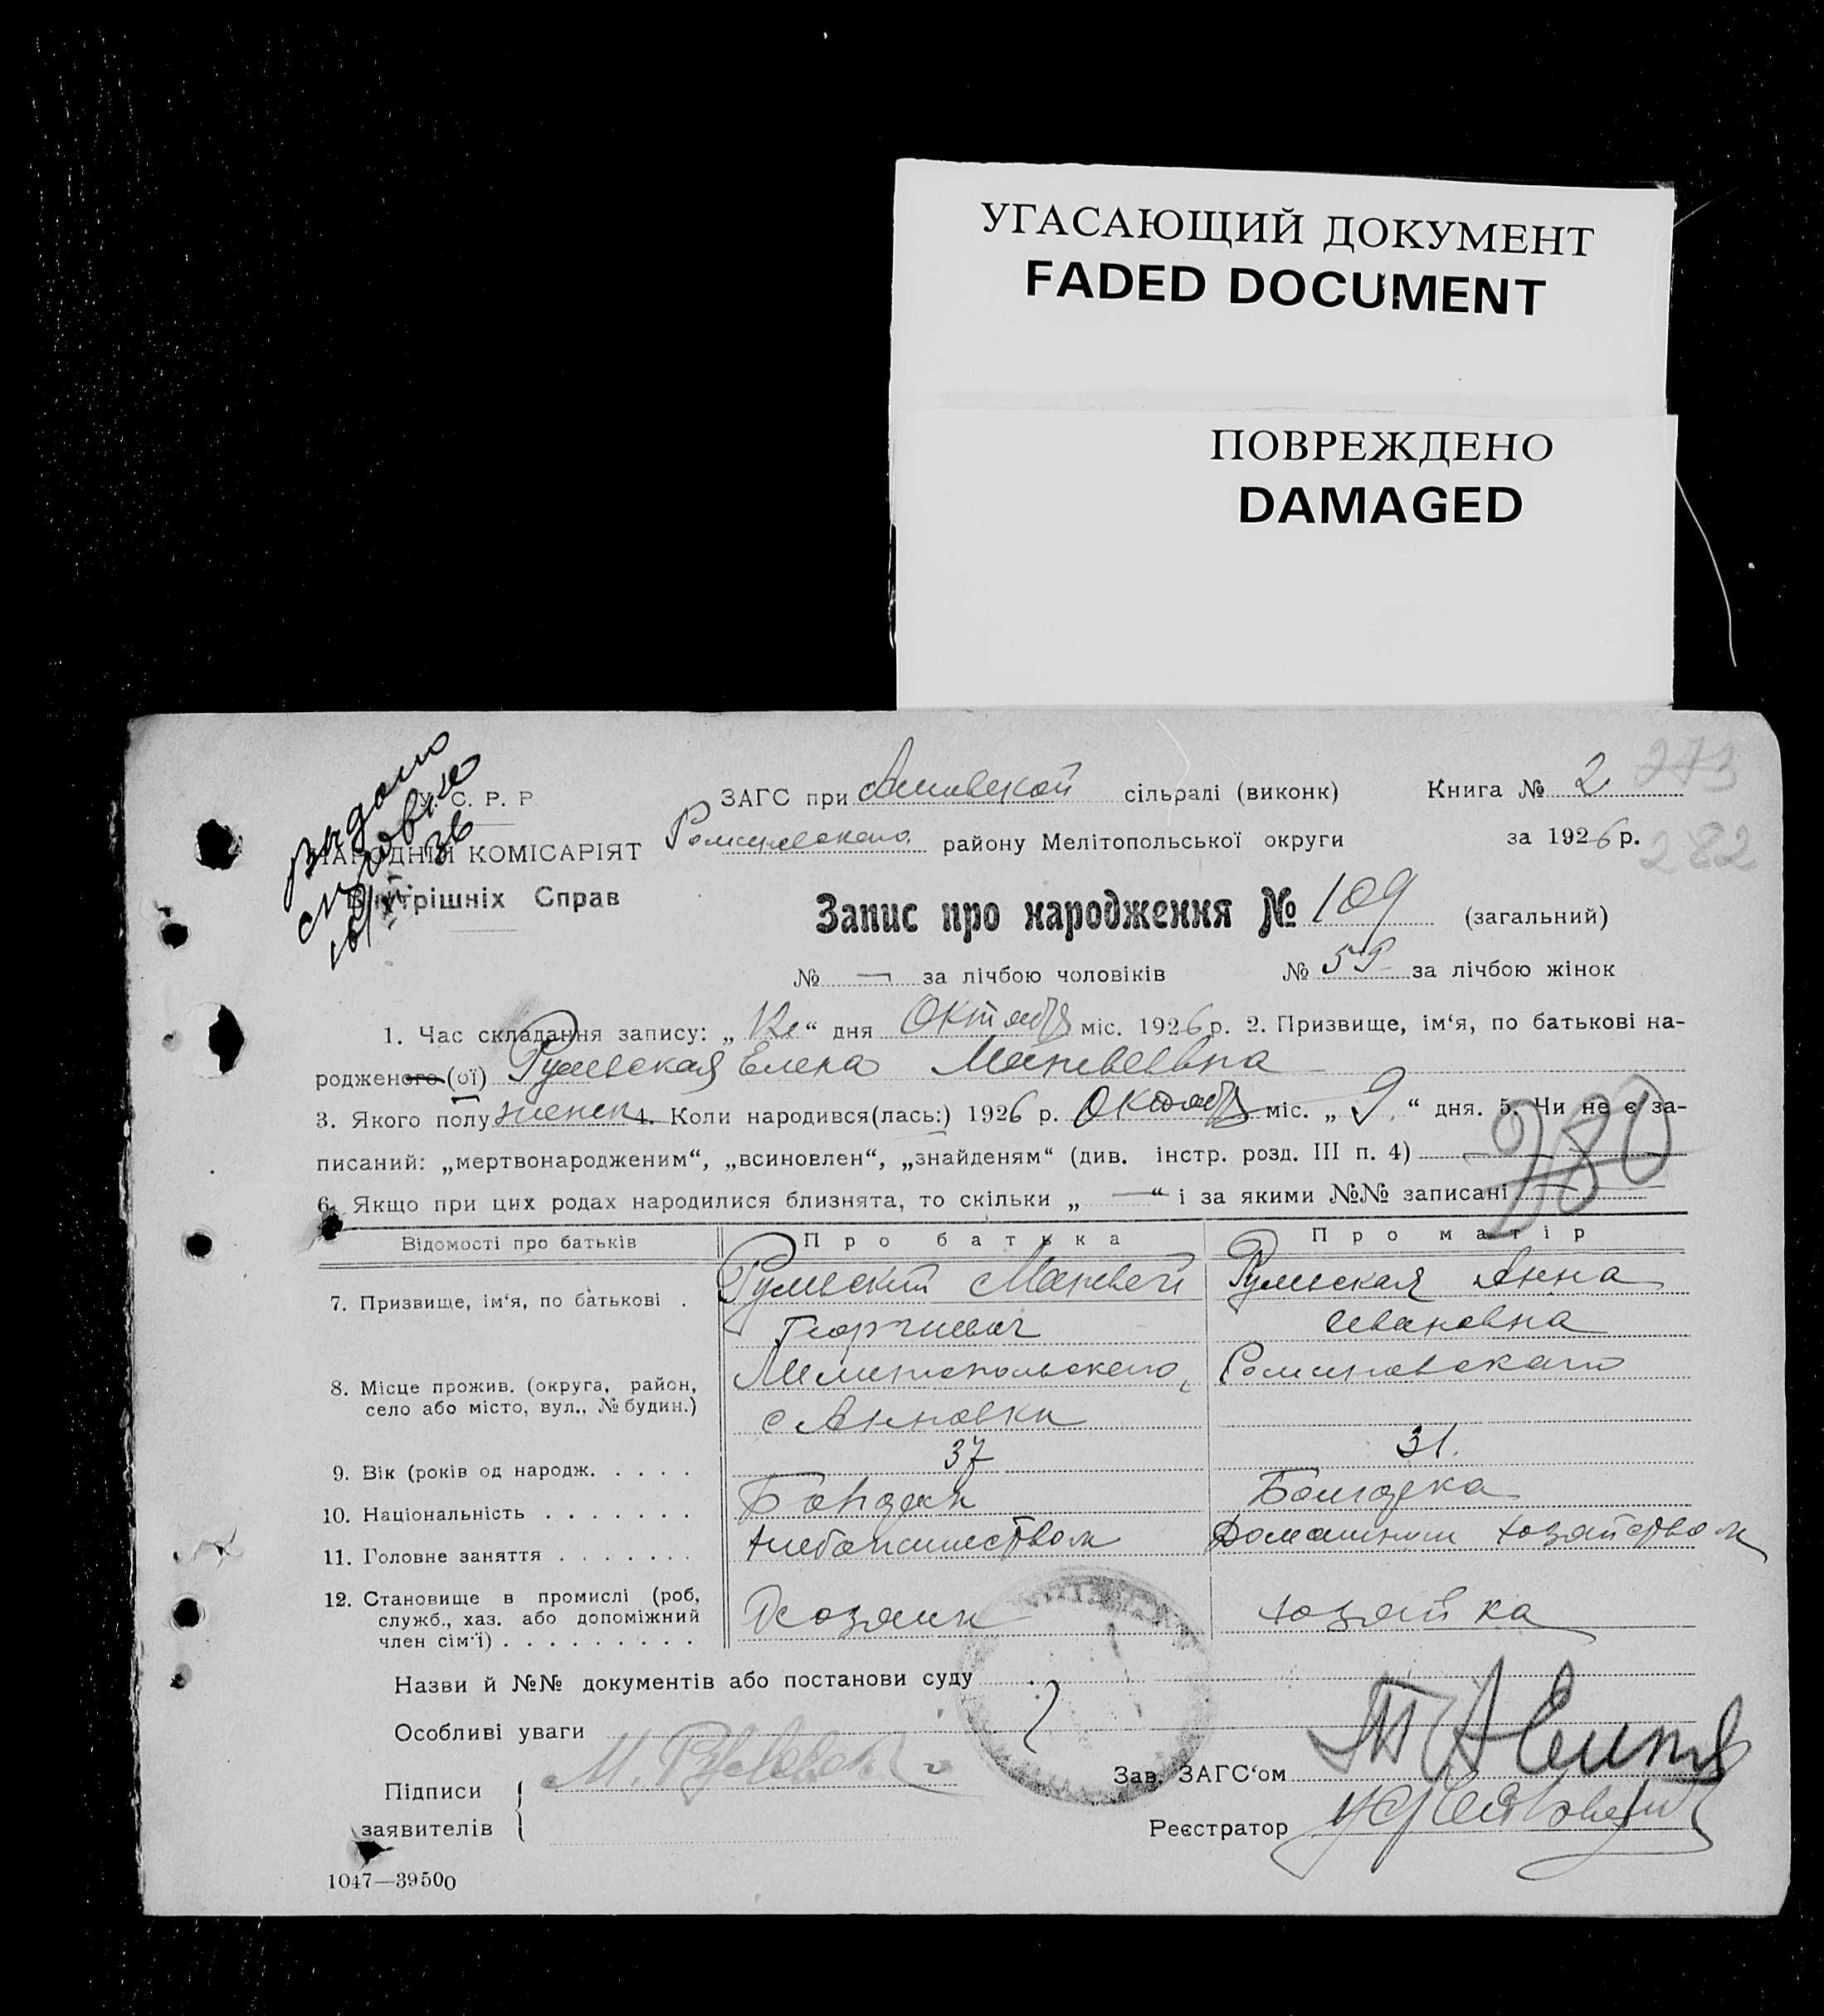 УГАСАЮЩИЙ ДОКУМЕНТ
FADED DOCUMENT
ПОВРЕЖДЕНО
DAMAGED
видано
У. С. Р. Р
НАРОДНІЙ КОМІСАРІЯТ
Внутрішніх Справ
ЗАГС при сільраді (виконк) Книга № 2 273
району Мелітопольської округи за 1926 р. 282
Запис про народження № 109 (загальний)
№ — за лічбою чоловіків № за лічбою жінок
1. Час складання запису: „ “ дня Октября міс. 1926 р. 2. Призвище, ім‘я, по батькові на-
родженого (ої) Елена Матвеевна
3. Якого полу женск 4. Коли народився(лась:) 1926 р. Октябр міс. „ 9 “ дня. 5. Чи не є за-
писаний: „мертвонародженим“, „всиновлен“, „знайденям“ (див. інстр. розд. III п. 4) —
280
6. Якщо при цих родах народилися близнята, то скільки „ — “ і за якими №№ записані —
Відомості про батьків Про батька Про матір
7. Призвище, ім‘я, по батькові . Матвей Анна
Георгиевич Ивановна
8. Місце прожив. (округа, район, село або місто, вул., № будин.) Мелитопольского,
с Анновки
9. Вік (років од народж. . . . . 37 31.
10. Національність . . . . . . . Болгарка
11. Головне заняття . . . . . . . хлебопашеством Домашним хозяйством
12. Становище в промислі (роб, служб., хаз. або допоміжний член сім‘ї) . . . . . . . . . Хозяин хозяйка
Назви й №№ документів або постанови суду
Особливі уваги
Підписи
заявителів
Зав. ЗАГС‘ом
Реєстратор
1047—39500